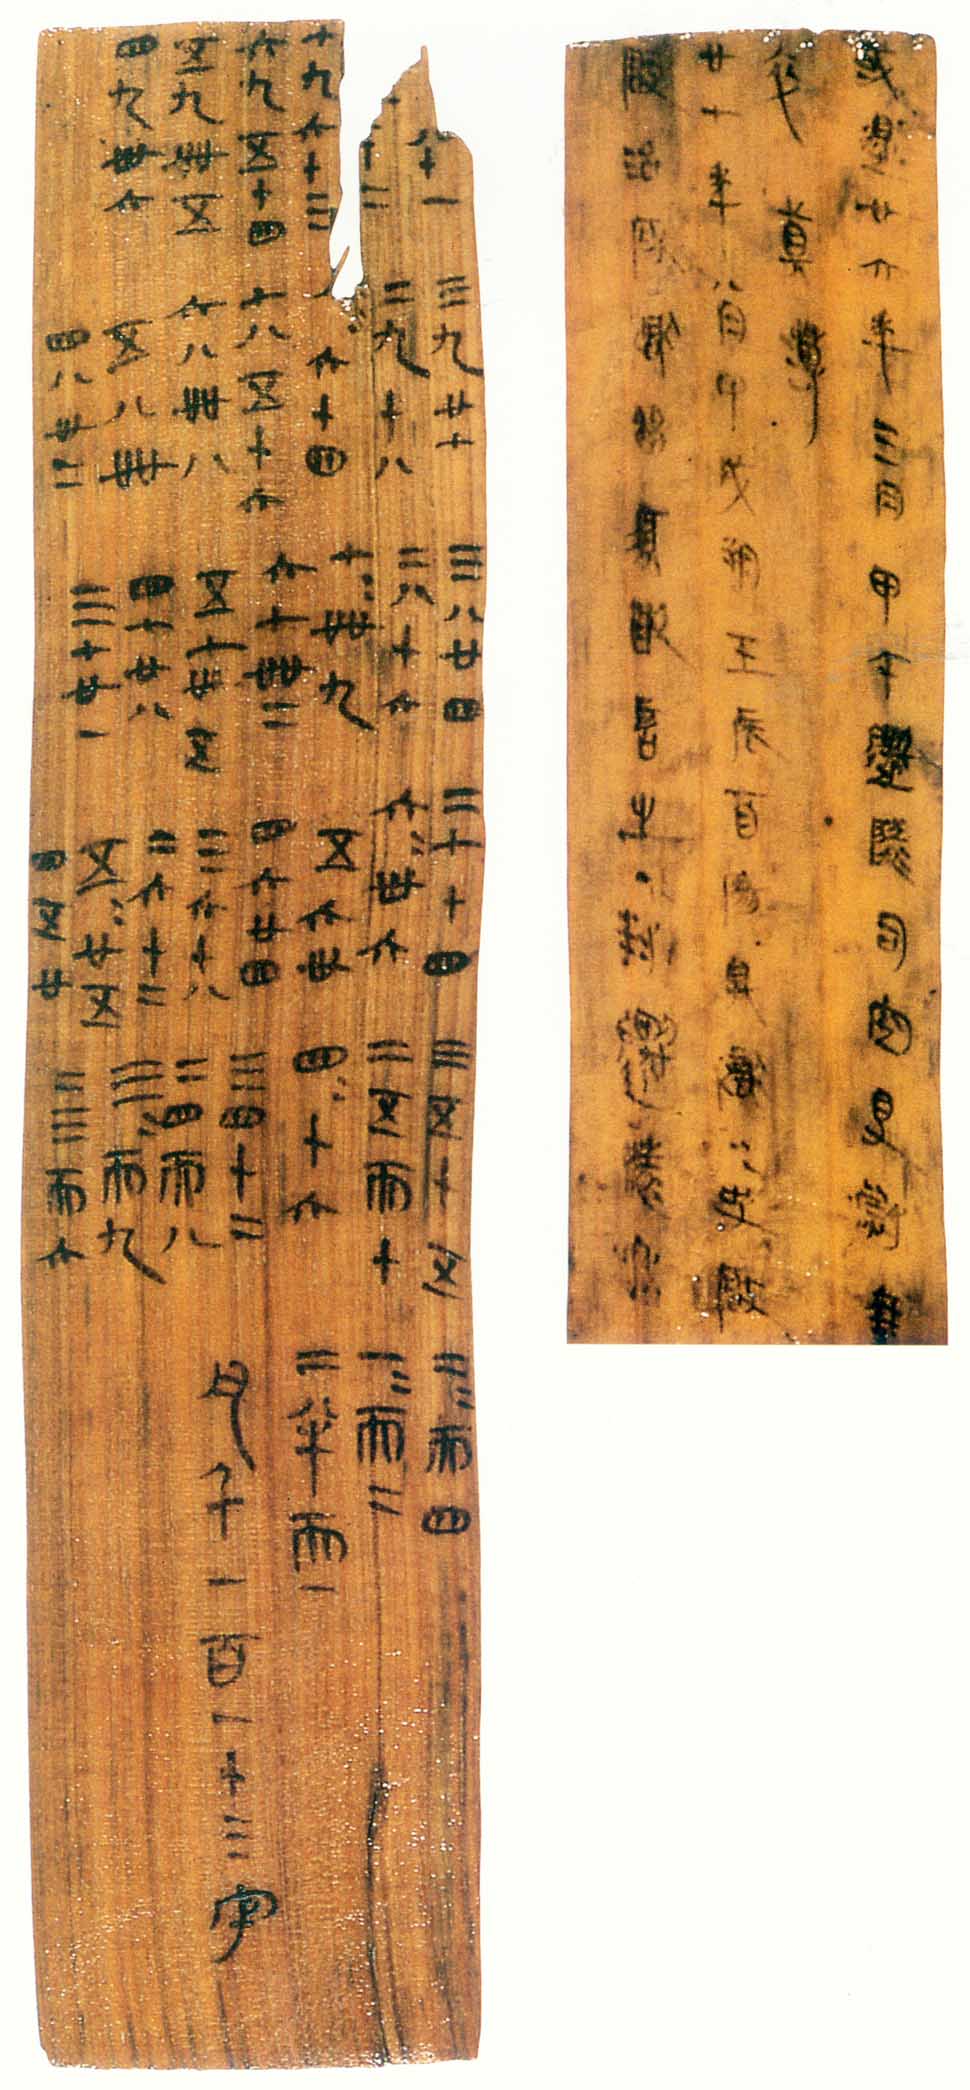 八十一
十二
七九六十三
六九五十四
五九卌五
四九卅六
三九廿七
二九十八
八=六十四
七八五十六
六八卌八
五八卌
四八卅二
三八廿四
二八十六
七=卌九
六七卌二
五七卅五
四七廿八
三七廿一
二七十四
六=卅六
五六卅
四六廿四
三六十八
二六十二
五=廿五
四五廿
三五十五
二五而十
四=十六
三四十二
二四而八
三=而九
二三而六
二=而四
一=而二
二半而一
凡千一百一十三字
或遝廿六年三月甲午遷陵司空得尉乘
卒真薄
廿七年八月甲戌朔壬辰酉陽具獄=史啟
啟治所獄留須敢言之·封遷陵丞